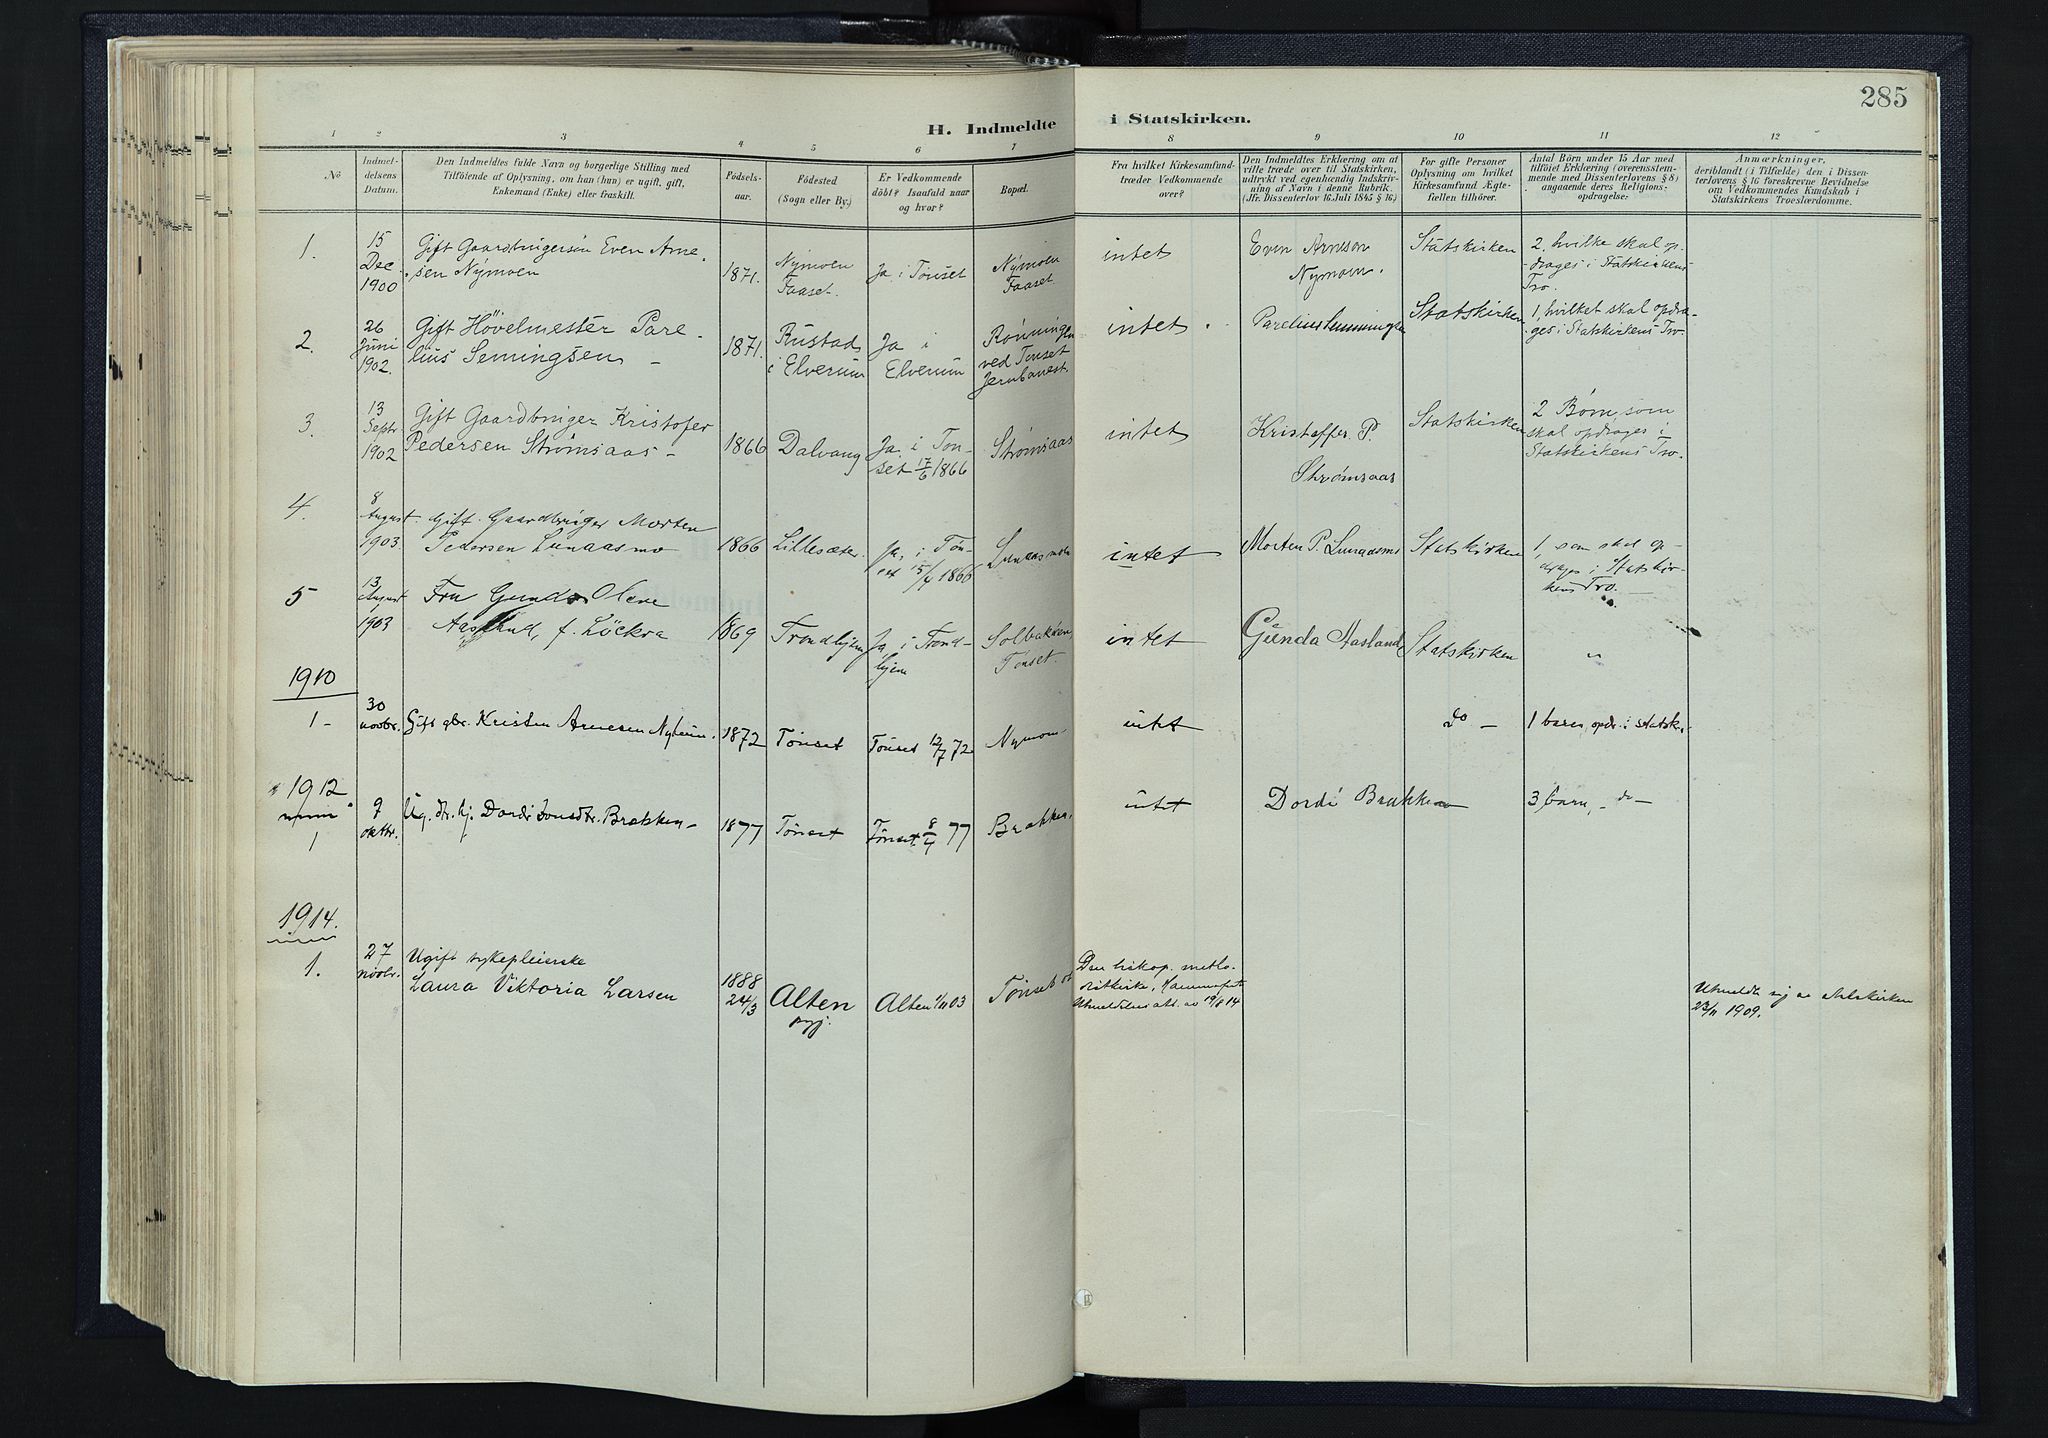 285
H. Indmeldte i Statskirken.
1 2 3 4 5 6 7 8 9 10 11 12
No
Indmel-
delsens
Datum.
Den Indmeldtes fulde Navn og borgerlige Stilling med
Tilföiende af Oplysning, om han (hun) er ugift, gift,
Enkemand (Enke) eller fraskilt.
Födsels-
aar.
Födested
(Sogn eller By.)
Er Vedkommende
döbt? Isaafald naar
og hvor?
Bopæl.
Fra hvilket Kirkesamfund-
træder Vedkommende
over?
Den Indmeldtes Erklæring om at
ville træde over til Statskirken,
udtrykt ved egenhændig Indskriv-
ning af Navn i denne Rubrik.
(Jfr. Dissenterlov 16 Juli 1845 § 16.)
For gifte Personer
Oplysning om hvilket
Kirkesamfund Ægte-
fællen tilhörer.
Antal Börn under 15 Aar med
tilföiet Erklæring (overensstem-
mende med Dissenterlovens § 8)
angaaende deres Religions-
opdragelse:
Anmærkninger,
deriblandt (i Tilfælde) den i Dissen-
terlovens § 16 foreskrevne Bevidnelse
om Vedkommendes Kundskab i
Statskirkens Troeslærdomme.
1.
15
Dec.
1900
Gift Gaardbrugersøn Even Arne-
sen Nymoen
1871.
Nymoen
Faaset.
Ja i Tönset
Nymoen
Faaset
intet
Even Arnesen
Nymoen.
Statskirken
2, hvilke skal op-
drages i Statskirkens
Tro.
2.
26
Juni
1902.
Gift Hövelmester Pare-
lius Semingsen
1871.
Rustad
i Elverum
Ja i
Elverum
Rønningen
ved Tönset
Jernbanest.
intet.
Parelius Semmingsen
Statskirken
1, hvilket skal opdra-
ges i Statskirkens Tro.
3.
13
Septr.
1902
Gift Gaardbruger Kristofer
Pedersen Strømsaas
1866
Dalvang
Ja, i Tön-
set 17/6 1866
Strømsaas
intet
Kristoffer P.
Strømsaas
Statskirken
2 Børn som
skal opdrages i
Statskirkens Tro.
4.
8
August
1903.
Gift Gaardbruger Morten
Pedersen Lunaasmo
1866
Lillesæter
Ja, i Tön-
set 15/4 1866
Lunaasmoen
intet
Morten P. Lunaasmo
Statskirken
1, som skal op-
drages i Statskir-
kens Tro.
5
13
August
1903
Fru Gunda Olene
Aasland, f. Löckra
1869
Trondhjem
Ja, i Trond-
hjem
Solbakken
Tönset.
intet
Gunda Aasland
Statskirken
"
1910
1 -
30
novbr.
Gift gbr. Kristen Arnesen
1872
Tönset
Tönset 12/7 72
Nymoen
intet
do -
1 barn, opdr. i statsk.
1912
1
9
oktbr.
Ug. Dordi Jonsdtr. Brækken
1877
Tönset
Tönset 8/4 77
Brækken.
intet
Dordi Brækken
3 barn, - do -
1914.
1.
27
novbr.
Ugift sykepleierske
Laura Viktoria Larsen
1888
24/3
Alten
Alten 1/11 03
Tönset
Den biskop. meto-
distkirke, Hammerfest
Utmeldelses att. av 19/8 14
Utmeldt sig av statskirken
23/11 1909.